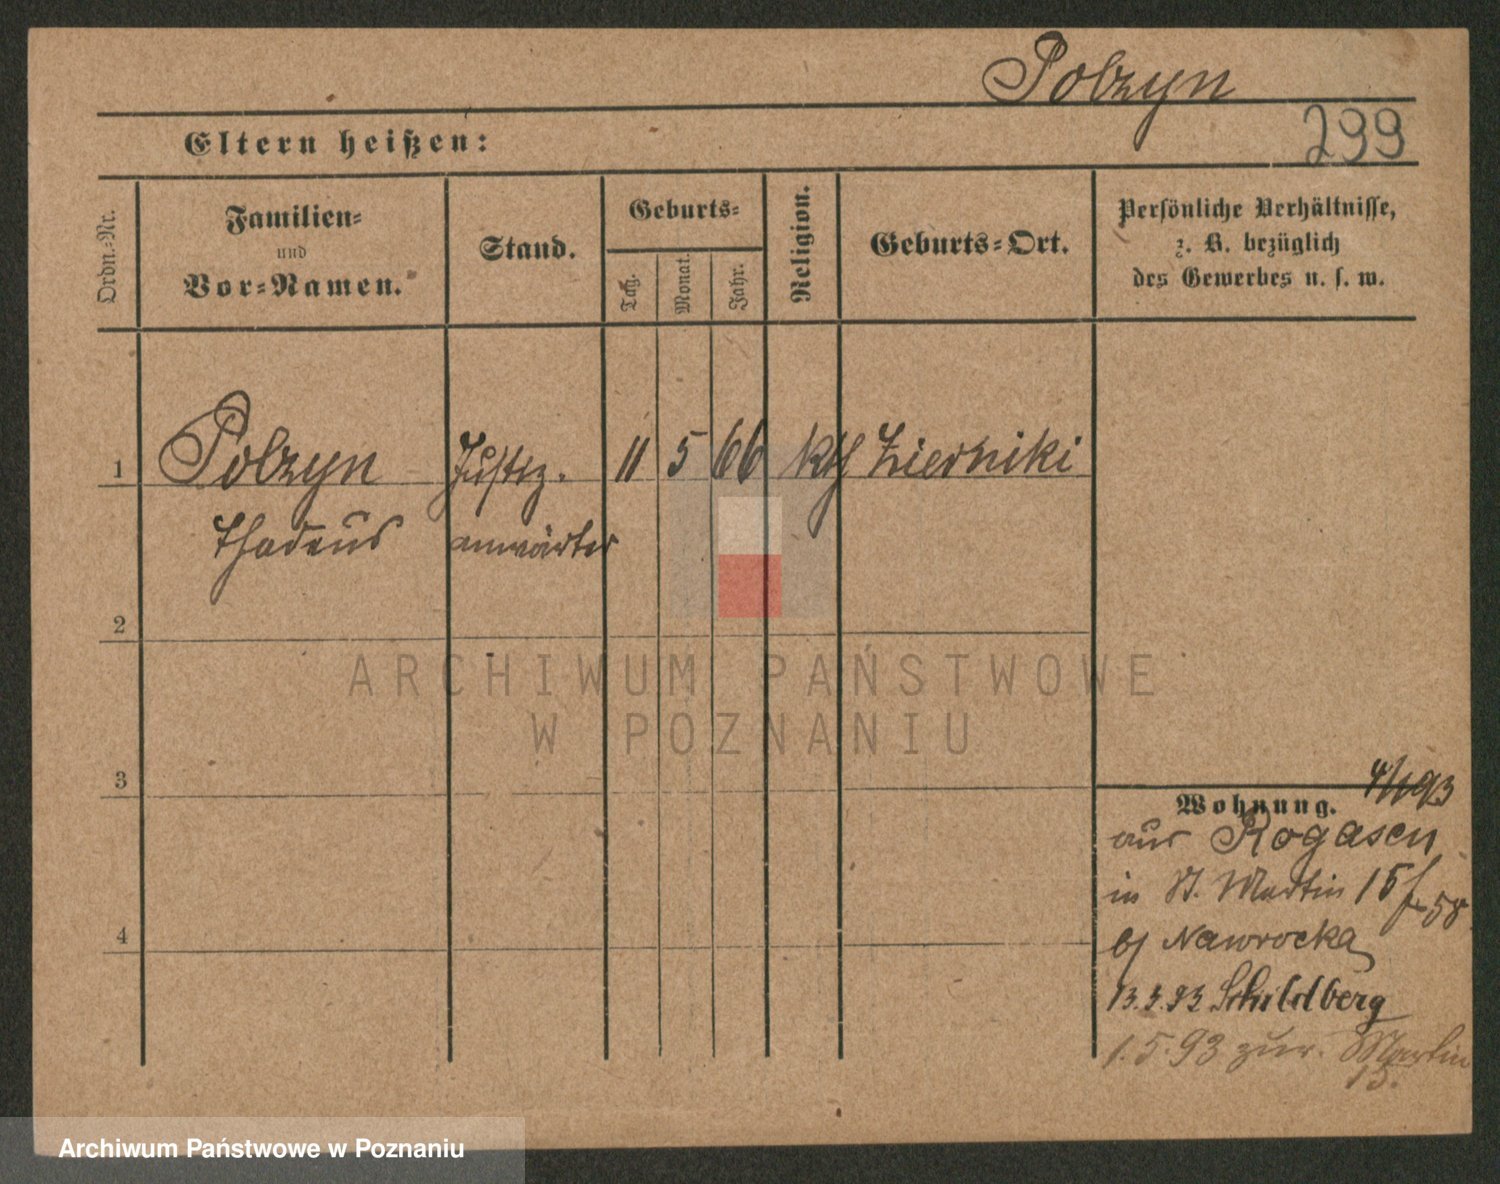 Polzyn
299
Eltern heißen:
Ordn.-Nr.
Familien-
und
Vor-Namen.
Stand.
Geburts-
Tag.
Monat.
Jahr.
Religion.
Geburts-Ort.
Persönliche Verhältnisse,
z. B. bezüglich
des Gewerbes u. s. w.
1 Polzyn Justiz. 11 5 66 kth Zierniki
Thadeus anwärter
2
ARCHIWUM PAŃSTWOWE
W POZNANIU
3
4
Wohnung.
aus Rogasen
in St. Martin 15
b/ Nawrocka
13.3.93 Schildberg
1.5.93 zur. Martin
15.
Archiwum Państwowe w Poznaniu